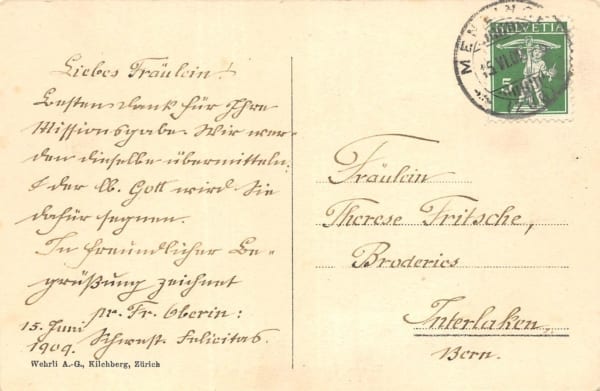 Liebes Fräulein!
Besten Dank für Ihre
Missionsgabe. Wir wer-
den dieselbe übermitteln:
& der lb. Gott wird Sie
dafür segnen.
In freundlicher Be-
grüßung zeichnet
pr. Fr. Oberin:
15. Juni
1909.
Schwest. Felicitas.
Wehrli A.-G., Kilchberg, Zürich
HELVETIA
5
15.VI.09
Fräulein
Therese Fritsche,
Broderies
Interlaken,
Bern.